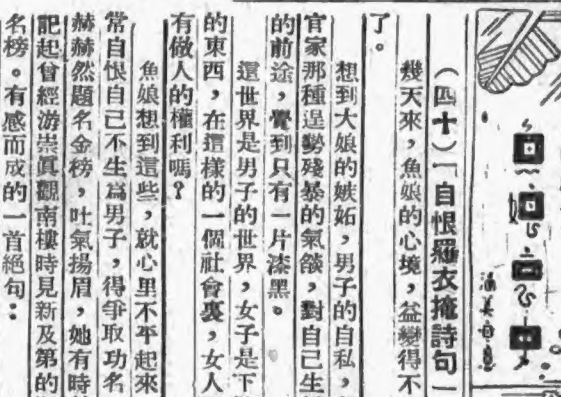 （四十）「自恨羅衣掩詩句
幾天來，魚娘的心境，益變得不
了。
想到大娘的嫉妬，男子的自私，
官家那種逞勢殘暴的氣燄，對自己生
的前途，覺到只有一片漆黑。
這世界是男子的世界，女子是下
的東西，在這樣的一個社會裏，女人
有做人的權利嗎？
魚娘想到這些，就心里不平起來
常自恨自己不生爲男子，得爭取功名
赫赫然題名金榜，吐氣揚眉，她有時
記起曾經游崇眞觀南樓時見新及第的
名榜。有感而成的一首絕句：